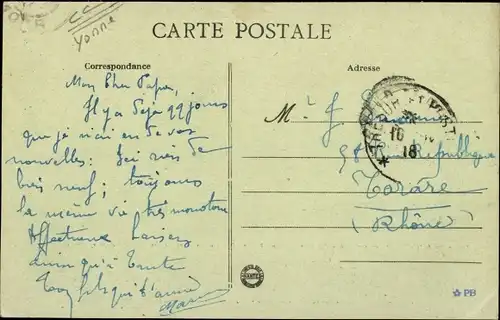 Yonne
CARTE POSTALE
Correspondance
Adresse
Mon Cher Papa,
Il y a déjà 99 jours
que je n'ai eu de vos
nouvelles: J'ai rien de
bien neuf; toujours
la même vie très monotone
Affectueux baisers
ainsi qu'à Tante
Ton fils qui t'aime
M. J.
TRESOR ET POSTES
16
18
République
Tarare
(Rhône)
PB